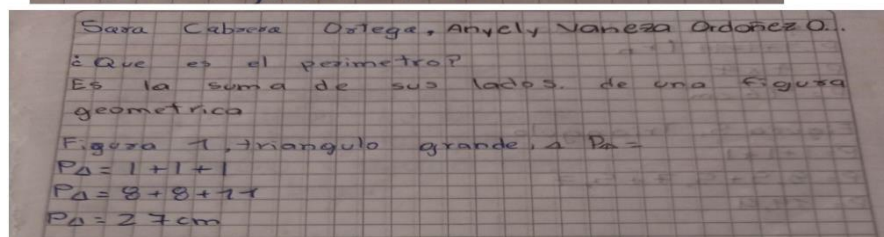 Sara Cabrera Ortega, Anyely Vaneza Ordoñez O...
¿Que es el perimetro?
Es la suma de sus lados. de una figura
geometrica
Figura 1, triangulo grande, △ P△=
P△= l+l+l
P△= 8+8+11
P△= 27cm